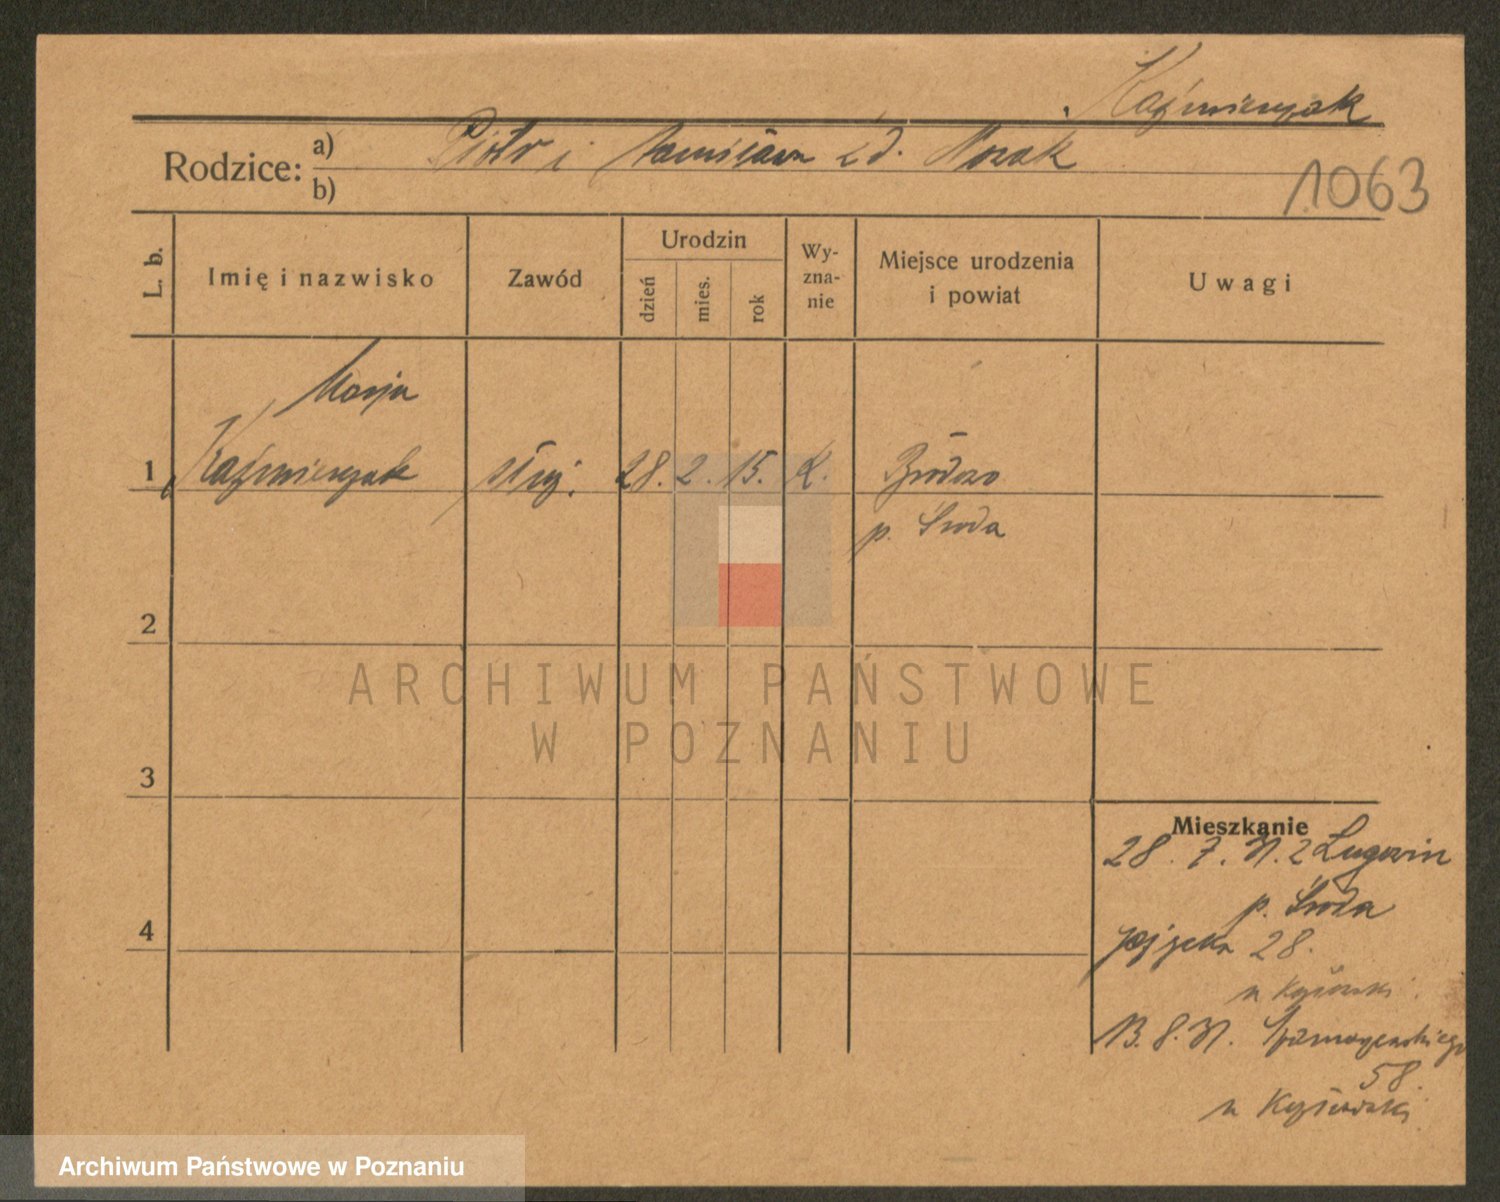 Kaźmierczak
Rodzice: a) Piotr i Stanisława zd. Nowak
b)
1063
L. b.
Imię i nazwisko
Zawód
Urodzin
dzień
mies.
rok
Wy-
zna-
nie
Miejsce urodzenia
i powiat
Uwagi
Marja
1 Kaźmierczak służ. 28. 2. 15. k. Bródowo
p. Środa
2
ARCHIWUM PAŃSTWOWE
W POZNANIU
3
Mieszkanie
28. 7. z
p. Środa
4
28.
u
13. 8.
58.
u
Archiwum Państwowe w Poznaniu